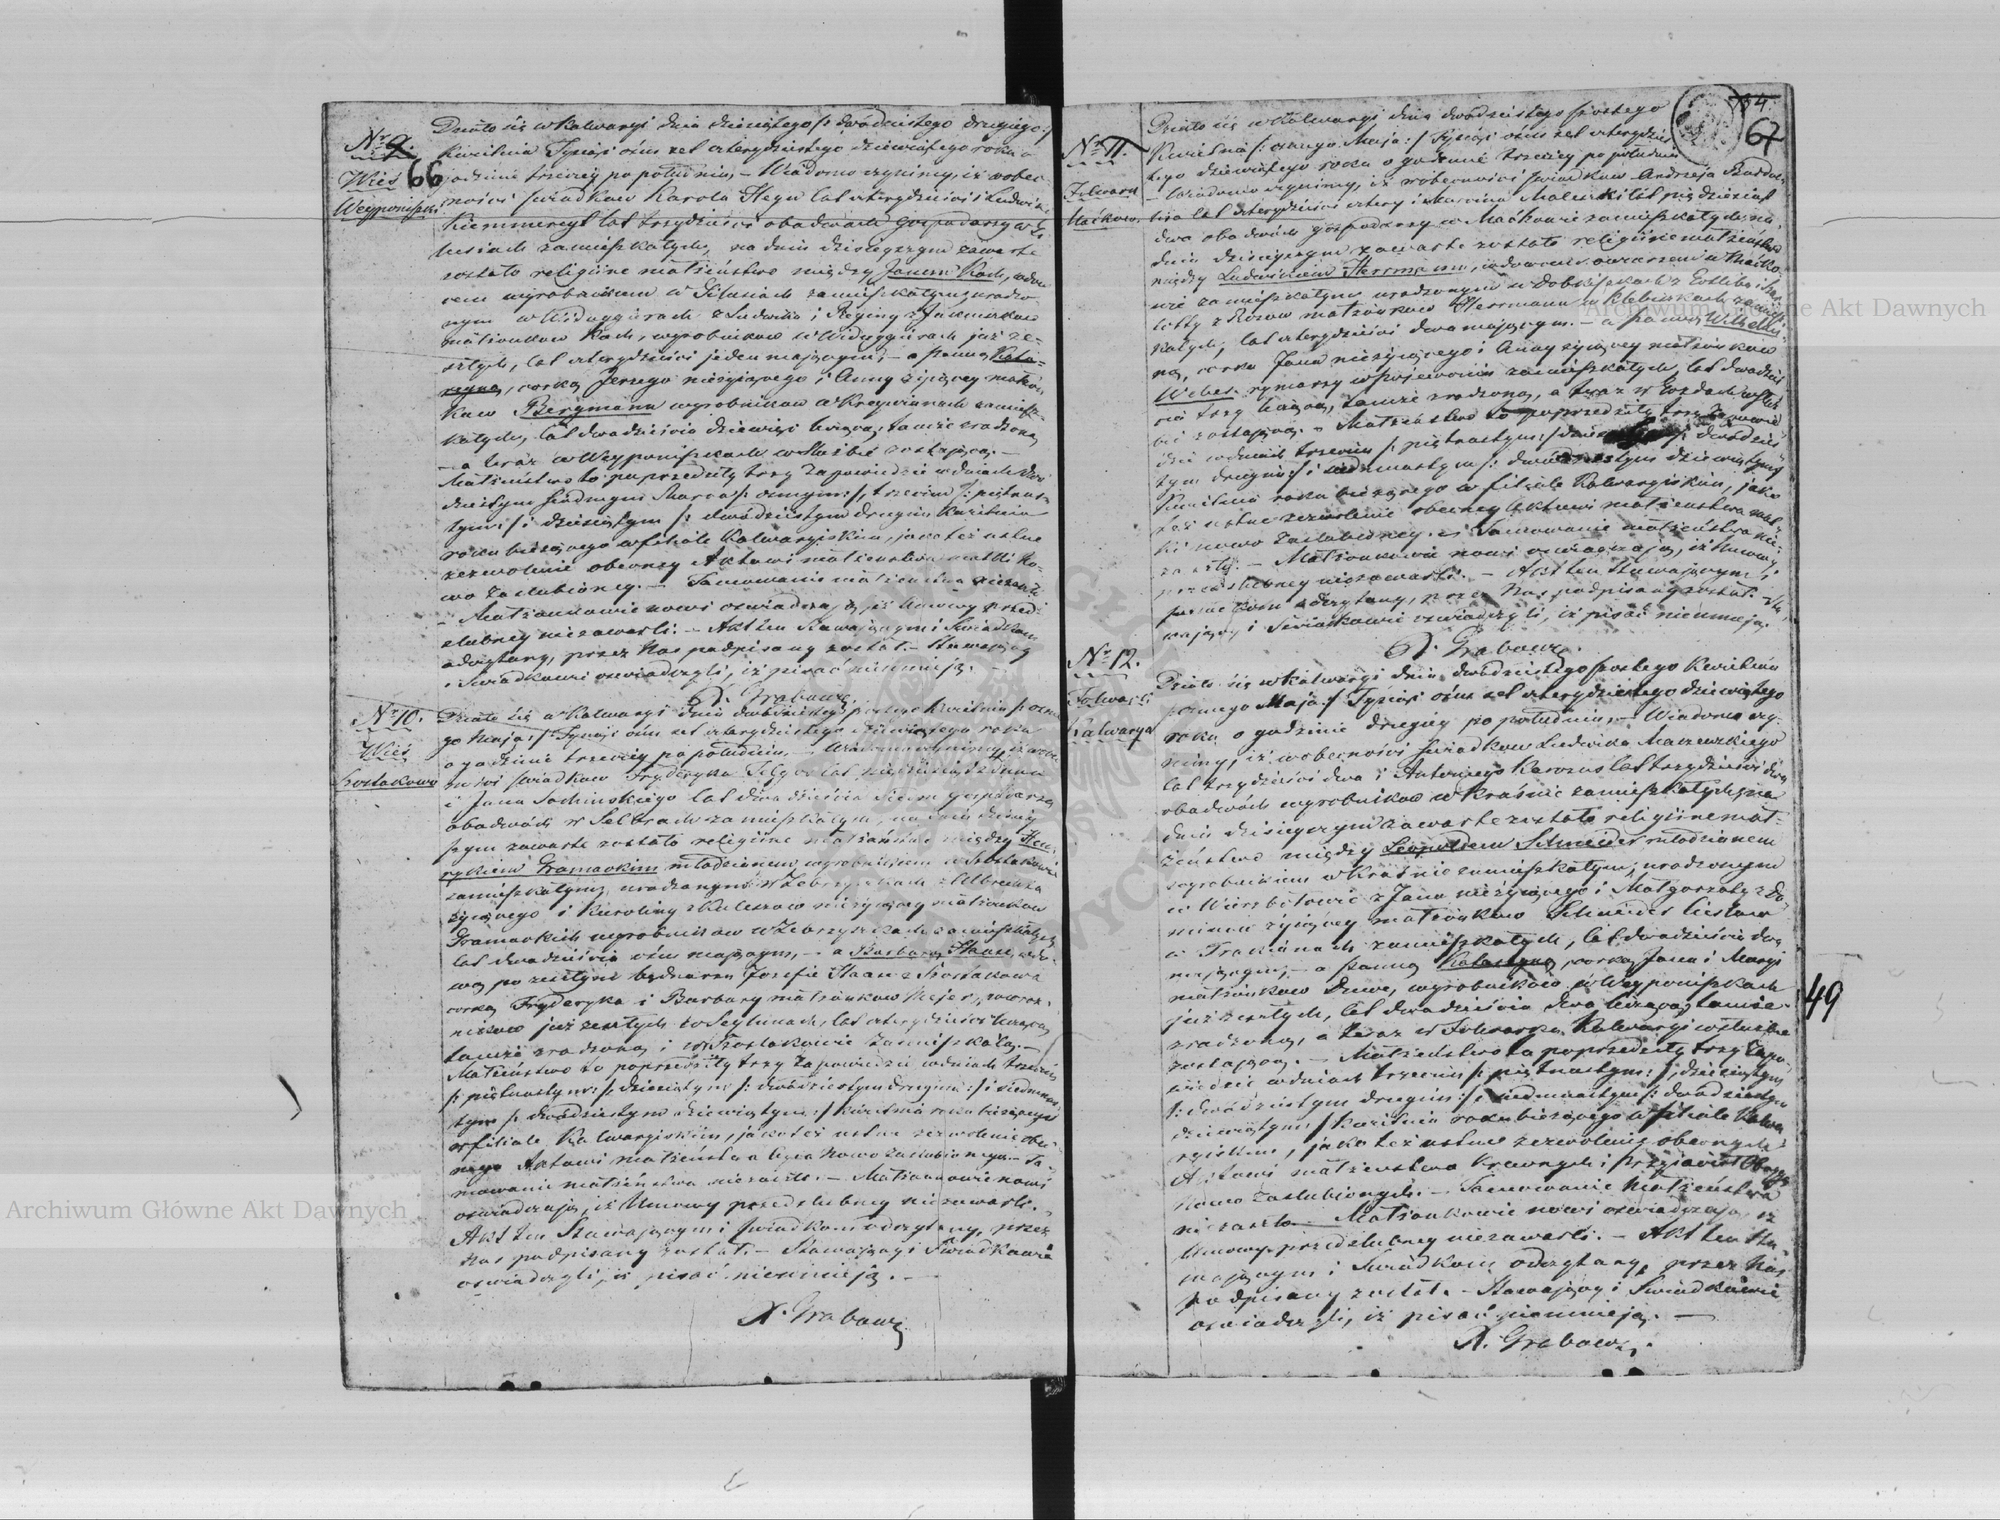 Nr 9.
66
Wieś
Weyponiszki
Działo się w Kalwaryi dnia dziesiątego /: dwódziestego drugiego :/
Kwietnia Tysiąc ośm set czterydziestego dziewiątego roku o
godzinie trzeciey po południu, – Wiadomo czynimy, iż wobec
ności świadków Karola Hegu lat czterydzieści i Ludwika
lat trzydzieści obadwóch gospodarzy w
zamieszkałych, na dniu dzisieyszym zawarte
zostało religijne małżeństwo między Janem Koch, wdow
cem wyrobnikiem w zamieszkałym urodzo
nym w Widugierach z Ludwika i Reginy z
małżonków Koch, wyrobników w Widugierach już ze-
szłych, lat czterydzieści jeden mającym, – a Panną Kata-
rzyną, córką Jerzego nieżyjącego i Anny żyjącey małżon
ków Bergmann wyrobników w Krowianach zamiesz
kałych, lat dwadzieścia dziewięć liczącą, tamże urodzoną
– a teraz w Weyponiszkach w służbie zostającą. –
Małżeństwo to poprzedziły trzy Zapowiedzie w dniach dwó
dziestym siódmym Marca /: ósmym :/, trzecim /: piętnas
tym :/ i dziesiątym /: dwódziestym drugim Kwietnia
roku bieżącego w filiale Kalwaryiskim, jako też ustne
zezwolenie obecney Aktowi małżeństwa matki No-
wo Zaślubioney. – Tamowanie małżeństwa niezaszło
– Małżonkowie nowi oświadczają, iż Umowy przed
ślubney niezawarli. – Akt ten Stawającym i Świadkom
odczytany, przez Nas podpisany został. – Stawający
i Świadkowie oświadczyli, iż pisać nieumieją. –
X. Grabowz
Nr 10.
Wieś
Szostakowo
Działo się w Kalwaryi dnia dwódziestego szóstego Kwietnia /: ósme
go Maja :/ Tysiąc ośm set czterydziestego dziewiątego roku
o godzinie trzeciey po południu. – Wiadomo czynimy, iż wobec
ności świadków Fryderyka lat
i Jana Sochińskiego lat dwadzieścia siedm gospodarzy
obadwóch w zamieszkałych, na dniu dzisiey
szym zawarte zostało religijne małżeństwo między Hen-
rykiem Gramackim młodzianem wyrobnikiem w Szostakowie
zamieszkałym, urodzonym w Zebrzyszkach z Albrechta
żyjącego i Karoliny z nieżyjącey małżonków
Gramackich wyrobników w Zebrzyszkach zamieszkałych
lat dwadzieścia ośm mającym, – a Barbarą Haase, wdo
wą po zmarłym bednarzu Jozefie Haase z Szostakowa
córką Fryderyka i Barbary małżonków Mejer,
już zeszłych w Seylinach, lat czterydzieści liczącą
tamże urodzoną i w Szostakowie zamieszkałą. –
Małżeństwo to poprzedziły trzy Zapowiedzie w dniach trzecim
/: piętnastym :/ dziesiątym /: dwódziestym drugim :/ i siedmnas
tym /: dwódziestym dziewiątym :/ Kwietnia roku bieżącego
w filiale Kalwaryiskim, jako też ustne zezwolenie obec
nego Aktowi małżeństwa Oyca Nowo Zaślubionego. – Ta-
mowanie małżeństwa niezaszło. – Małżonkowie nowi
oświadczają, iż Umowy przedślubney niezawarli. –
Akt ten Stawającym i Świadkom odczytany, przez
Nas podpisany został. – Stawający i Świadkowie
oświadczyli, iż pisać nieumieją. –
X. Grabowz
67
Nr 11.
Folwark
Maćkow
Działo się w Kalwaryi dnia dwódziestego szóstego
Kwietnia /: ósmego Maja :/ Tysiąc ośm set czterydzies
tego dziewiątego roku o godzinie trzeciey po południu
– Wiadomo czynimy, iż w obecności świadków Andrzeja
lat czterydzieści cztery i Marcina Malewski lat pięćdziesiąt
dwa obadwóch gospodarzy w Maćkowie zamieszkałych, na
dniu dzisieyszym zawarte zostało religijne małżeństwo
między Ludwikiem Herrmann, wdowcem owczarzem w Maćko
wie zamieszkałym urodzonym w z Gottliba i Szar
lotty z małżonków Herrmann w zamiesz
kałych, lat czterydzieści dwa mającym. – a Panną Wilhelmi
ną, córką Jana nieżyjącego i Anny żyjącey małżonków
Weber rymarzy w Pojewoniu zamieszkałych, lat dwadzieś
cia trzy liczącą, tamże urodzoną, a teraz w w służ
bie zostającą. – Małżeństwo to poprzedziły trzy Zapowie
dzie w dniach trzecim /: piętnastym :/ /: dwódzies
tym drugim :/ i siedmnastym /: dwódziestym dziewiątym
Kwietnia roku bieżącego w filiale Kalwaryiskim, jako
też ustne zezwolenie obecney Aktowi małżeństwa mat-
ki nowo Zaślubioney. – Tamowanie małżeństwa nie-
zaszło. – Małżonkowie nowi oświadczają, iż Umowy
przedślubney niezawarli. – Akt ten Stawającym i
Świadkom odczytany, przez Nas podpisany został. Sta
wający i Świadkowie oświadczyli, iż pisać nieumieją.
X. Grabowz.
Nr 12.
Folwark
Kalwarya
Działo się w Kalwaryi dnia dwódziestego szóstego Kwietnia
/: ósmego Maja :/ Tysiąc ośm set czterydziestego dziewiątego
roku o godzinie drugiey po południu. – Wiadomo czy-
nimy, iż w obecności świadków Ludwika Maczewskiego
lat trzydzieści dwa i Antoniego lat trzydzieści dwa
obadwóch wyrobników w Kraśnie zamieszkałych, na
dniu dzisieyszym zawarte zostało religijne mał-
żeństwo między Leopoldem Schneider młodzianem
wyrobnikiem w Kraśnie zamieszkałym, urodzonym
w Wierzbołowie z Jana nieżyjącego i Małgorzaty z
żyjącey małżonków Schneider Cieślów
w zamieszkałych, lat dwadzieścia dwa
mającym, – a Panną Katarzyną, córką Jana i Maryi
małżonków wyrobników w Weyponiszkach
już zeszłych, lat dwadzieścia dwa liczącą, tamże
urodzoną, a teraz w Folwarku Kalwaryi w służbie
zostającą. – Małżeństwo to poprzedziły trzy Zapo-
wiedzie w dniach trzecim /: piętnastym :/, dziesiątym
/: dwódziestym drugim :/ i siedmnastym /: dwódziestym
dziewiątym :/ Kwietnia roku bieżącego w filiale Kalwa
ryiskim, jako też ustne zezwolenie obecnych
Aktowi małżeństwa Krewnych i przyjaciół Oboyga
Nowo Zaślubionych. – Tamowanie Małżeństwa
niezaszło. – Małżonkowie nowi oświadczają iż
Umowy przedślubney niezawarli. – Akt ten Sta-
wającym i Świadkom odczytany, przez Nas
podpisany został. – Stawający i Świadkowie
oświadczyli, iż pisać nieumieją. –
X. Grabowz.
49
Archiwum Główne Akt Dawnych
Archiwum Główne Akt Dawnych